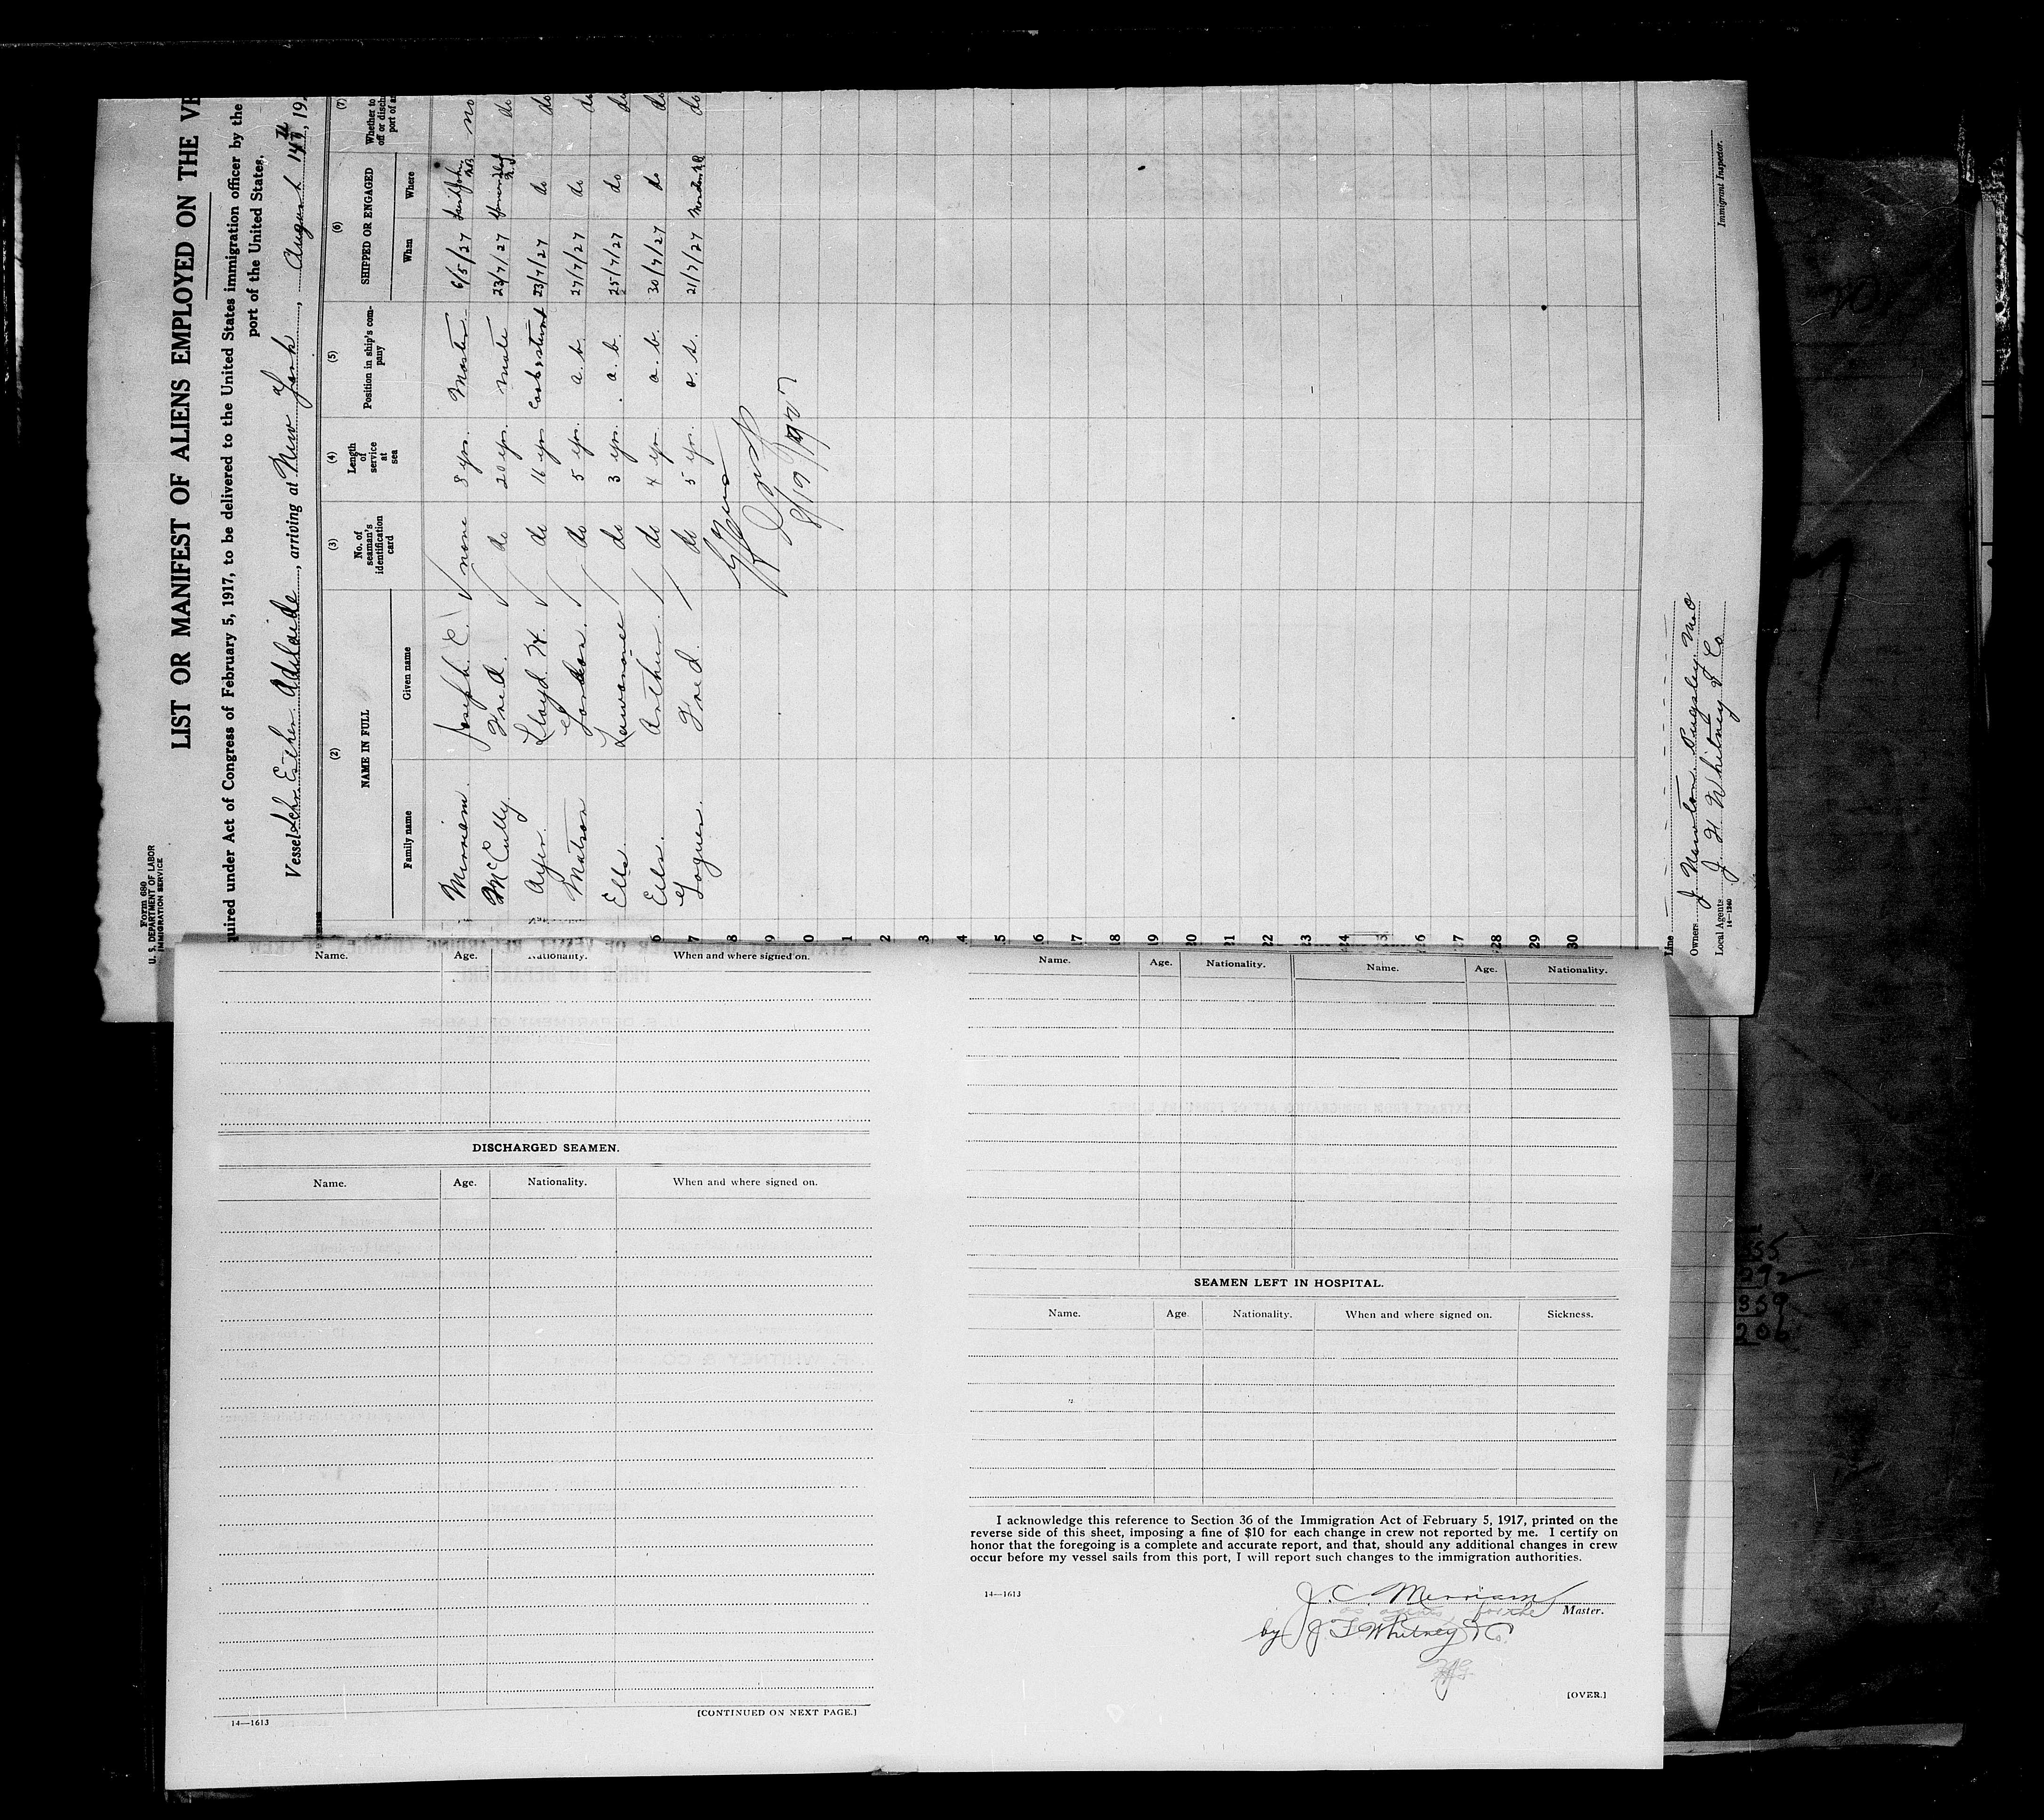 Form 680
U. S. DEPARTMENT OF LABOR
IMMIGRATION SERVICE
LIST OR MANIFEST OF ALIENS EMPLOYED ON THE VE
quired under Act of Congress of February 5, 1917, to be delivered to the United States immigration officer by the
port of the United States.
Vessel Schr. Esther Adelaide, arriving at New York, August 14th, 19
(2) (3) (4) (5) (6) (7)
NAME IN FULL No. of seaman's identification card Length of service at sea Position in ship's company SHIPPED OR ENGAGED Whether to
off or disch
port of ar
Family name Given name When Where
Merriam Joseph C. none 8 yrs. Master 6/5/27 Saint John N.B. no
McCully Fred. do 20 yrs. mate 23/7/27 N.S. do
Ayer Lloyd H. do 16 yrs Cook & steward 23/7/27 do do
Matson Gordon. do 5 yrs. a. b. 27/7/27 do do
Ells. Lawarance do 3 yrs. a. b. 25/7/27 do do
6 Ells. Arthur. do 4 yrs. a. b. 30/7/27 do do
7 Fred. do 5 yrs. o. s. 21/7/27 do
8
9
0
1
2
3
4
5
16
17
18
19
20
21
22
23
24
25
26
27
28
29
30
Line
Owners J Newton Pugsley
Local Agents J F Whitney & Co
14—1240
Immigrant Inspector.
Name. Age. Nationality. When and where signed on.
DISCHARGED SEAMEN.
Name. Age. Nationality. When and where signed on.
14—1613
[CONTINUED ON NEXT PAGE.]
Name. Age. Nationality. Name. Age. Nationality.
SEAMEN LEFT IN HOSPITAL.
Name. Age Nationality. When and where signed on. Sickness.
I acknowledge this reference to Section 36 of the Immigration Act of February 5, 1917, printed on the
reverse side of this sheet, imposing a fine of $10 for each change in crew not reported by me. I certify on
honor that the foregoing is a complete and accurate report, and that, should any additional changes in crew
occur before my vessel sails from this port, I will report such changes to the immigration authorities.
14—1613
J. C. Merriam
as agents for the Master.
by J. F. Whitney & Co.
[OVER.]
359
206